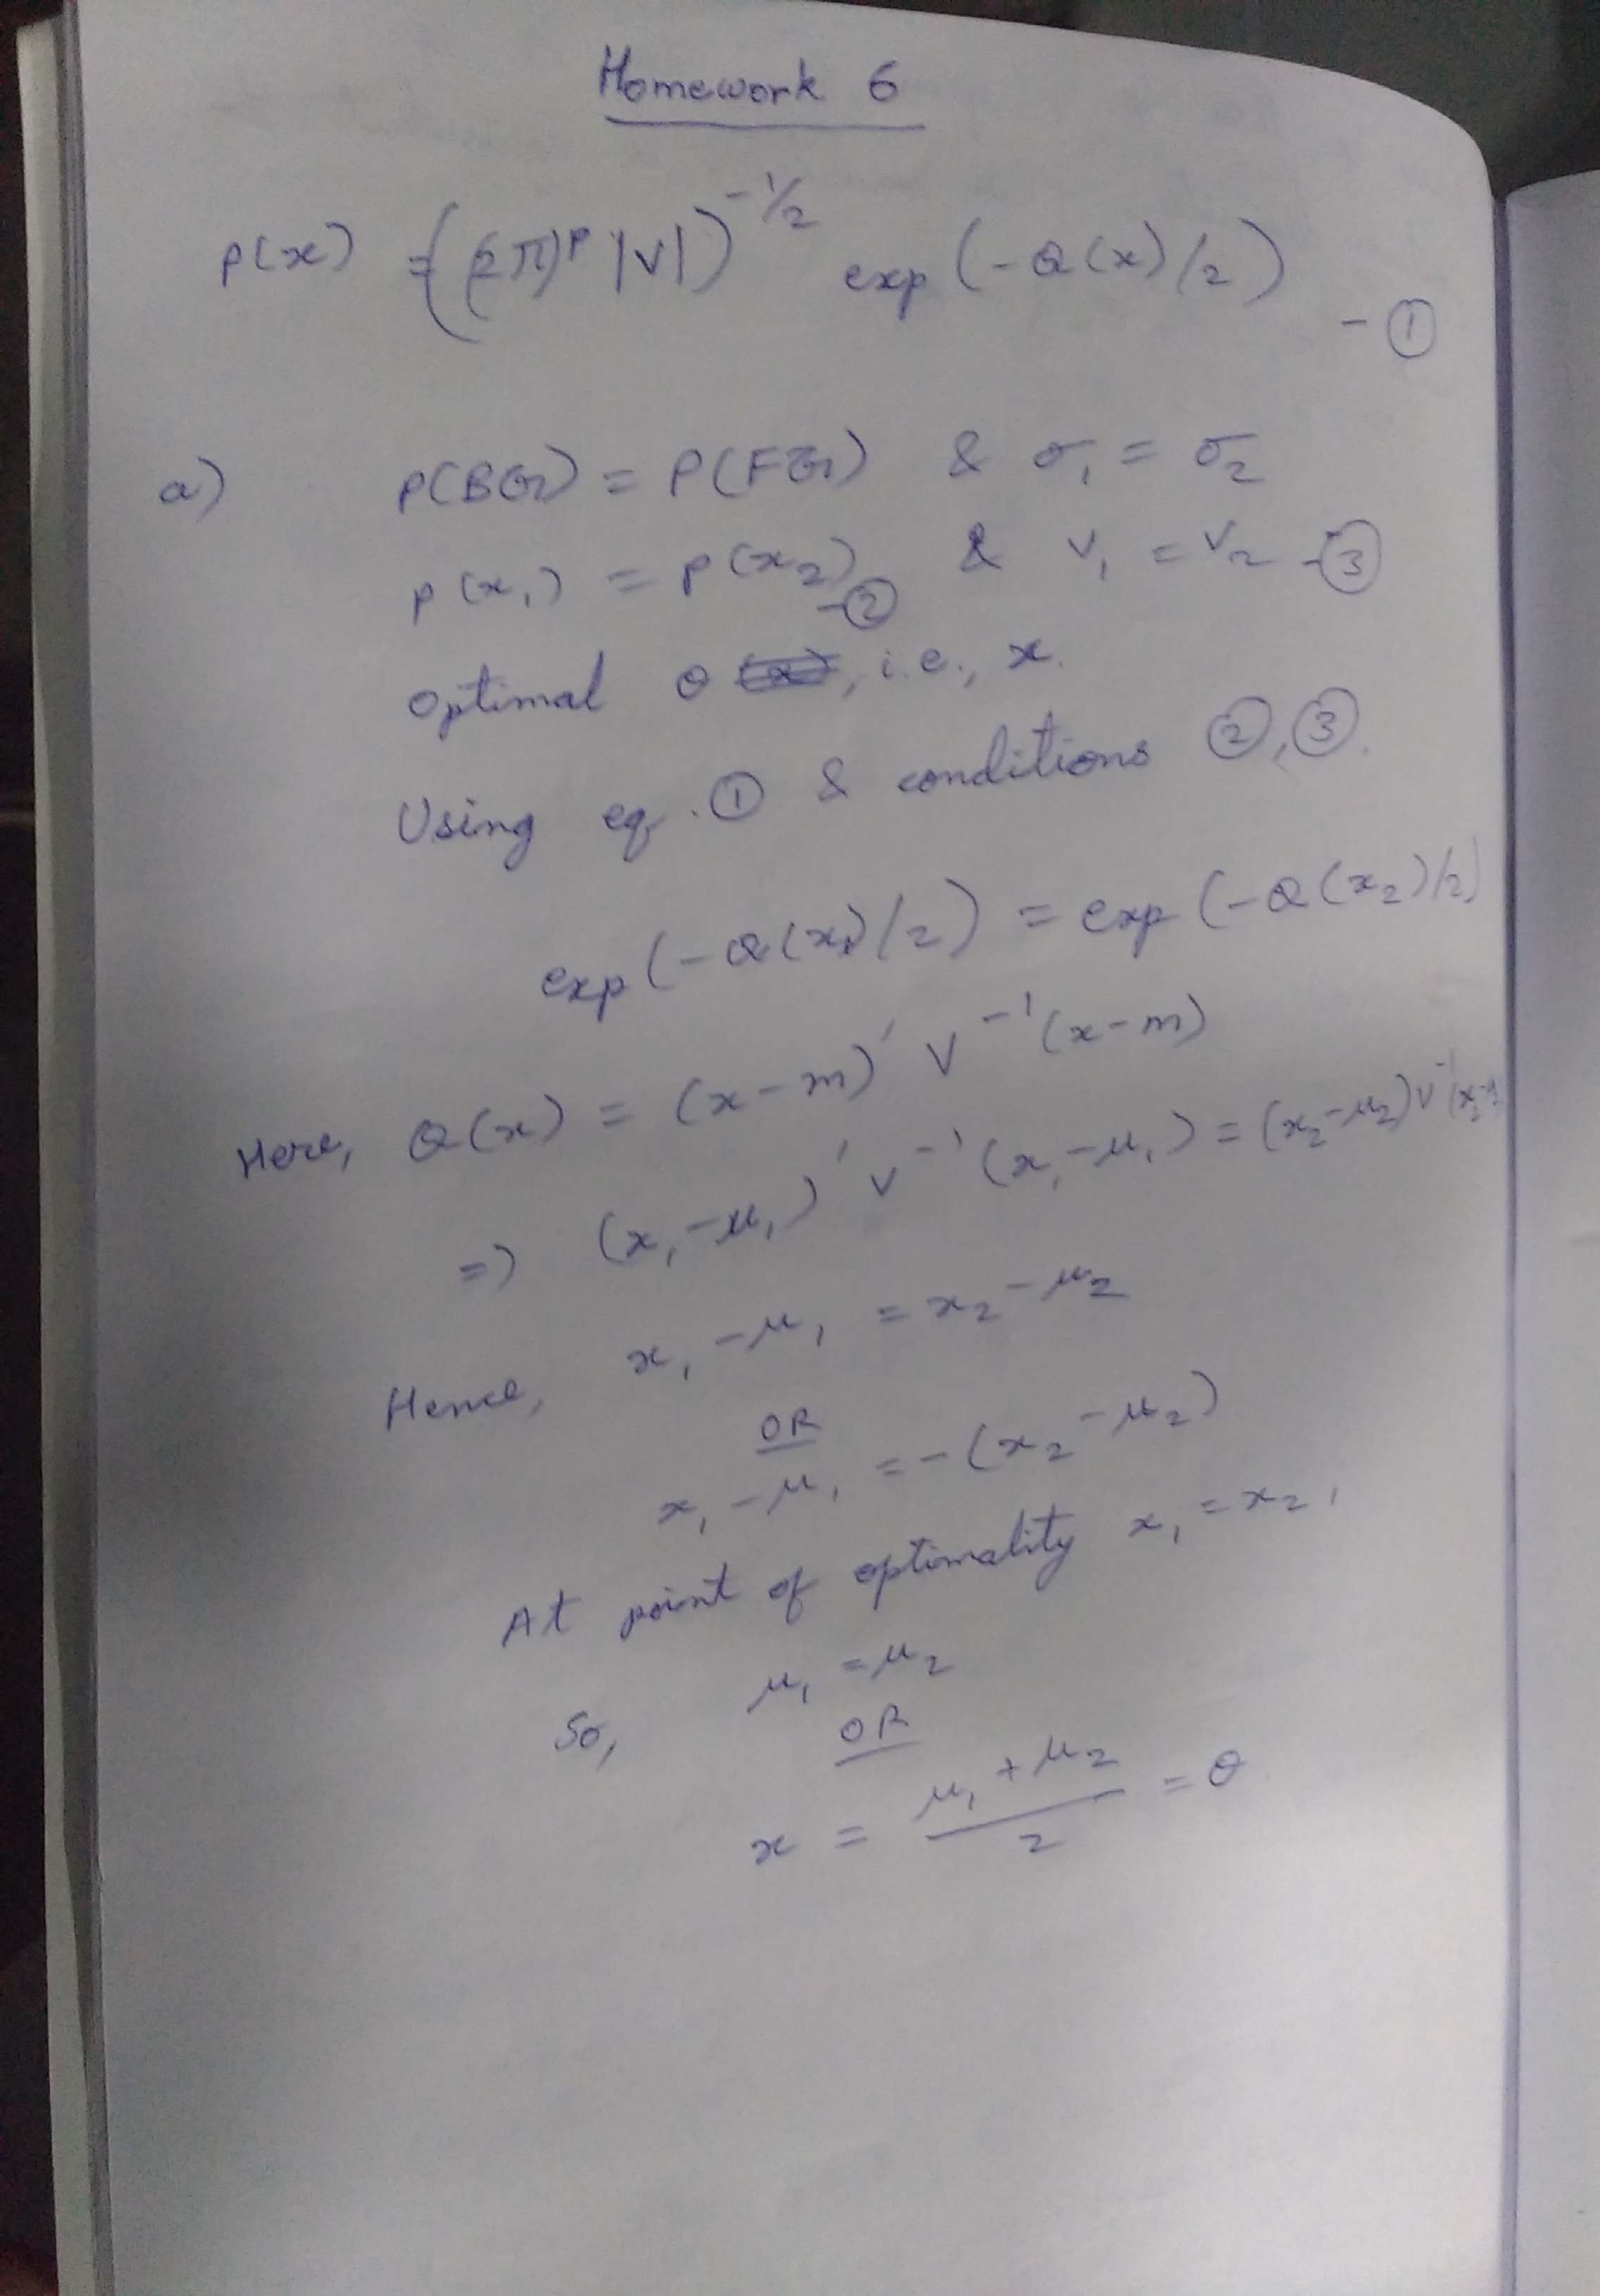 Homework 6
p(x) = {(2π)^p |V|)^-1/2 exp (-Q(x)/2) - ①
a) P(BG) = P(FG) & σ₁ = σ₂
p(x₁) = p(x₂) -② & V₁ = V₂ -③
Optimal θ, i.e., x.
Using eq. ① & conditions ②, ③.
exp(-Q(x₁)/2) = exp(-Q(x₂)/2)
Here, Q(x) = (x-m)' V^-1 (x-m)
=> (x₁-μ₁)' V^-1 (x₁-μ₁) = (x₂-μ₂) V^-1 (x₂-
Hence, x₁-μ₁ = x₂-μ₂
OR
x₁-μ₁ = -(x₂-μ₂)
At point of optimality x₁ = x₂,
So, μ₁ = μ₂
OR
x = (μ₁ + μ₂)/2 = θ